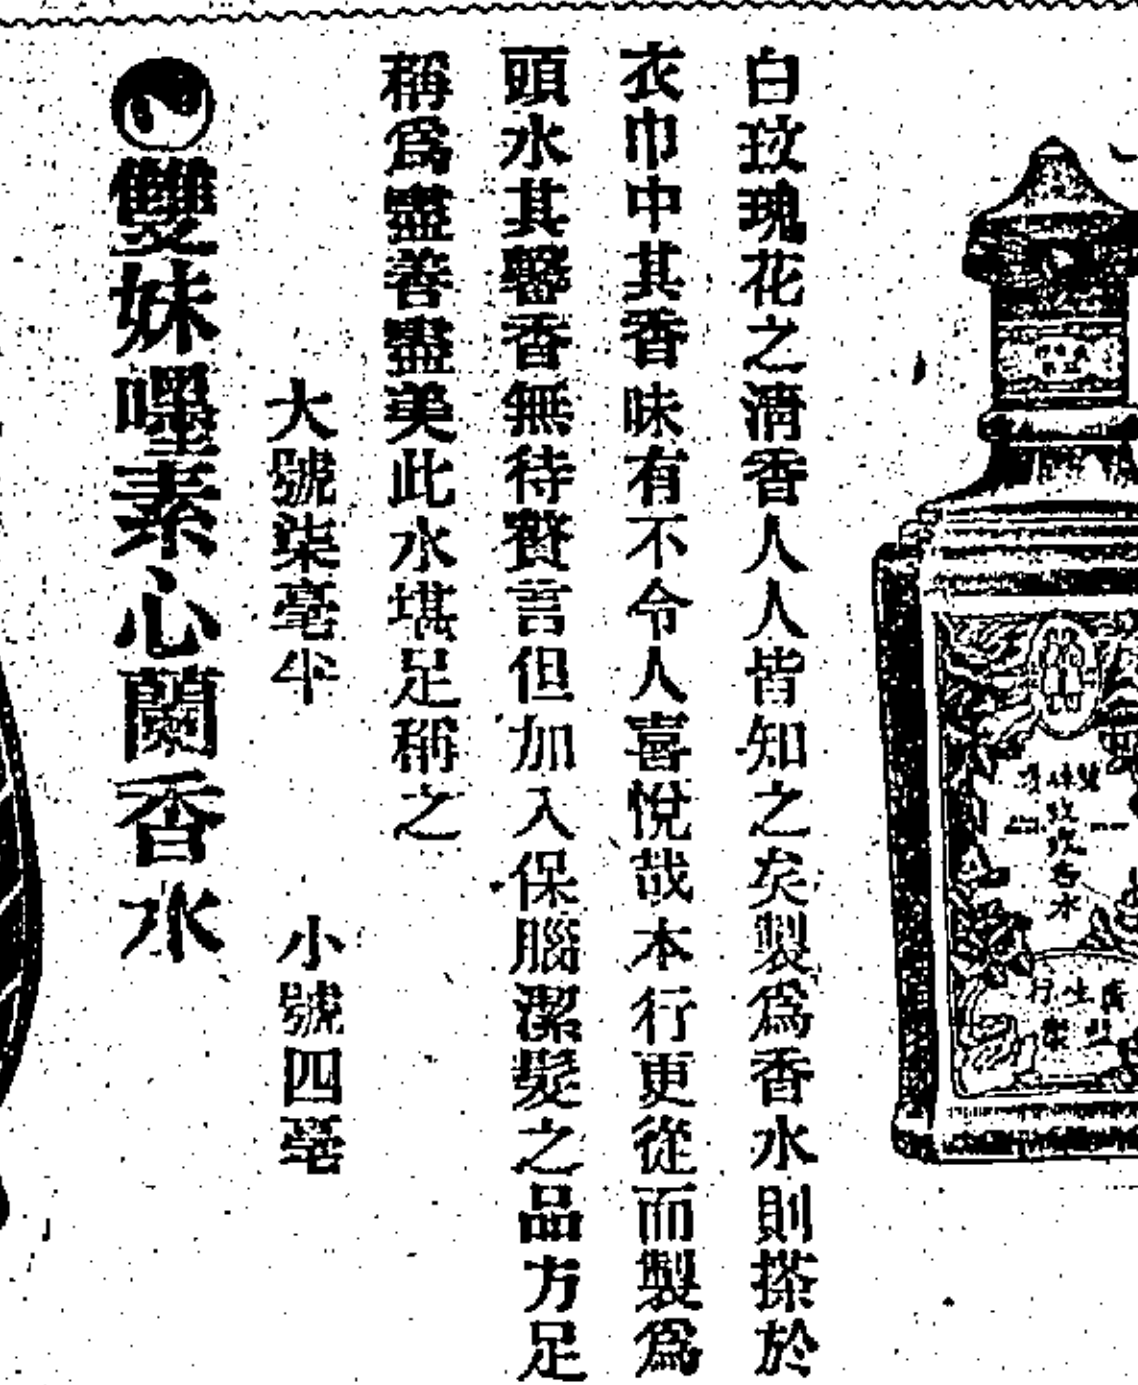 白玫瑰花之清香人人皆知之矣製爲香水則搽於
衣巾中其香味有不令人喜悅哉本行更從而製爲
頭水其馨香無待贅言但加入保腦潔髮之品方足
稱爲盡善盡美此水堪足稱之
大號柒毫半 小號四毫
雙妹嚜素心蘭香水